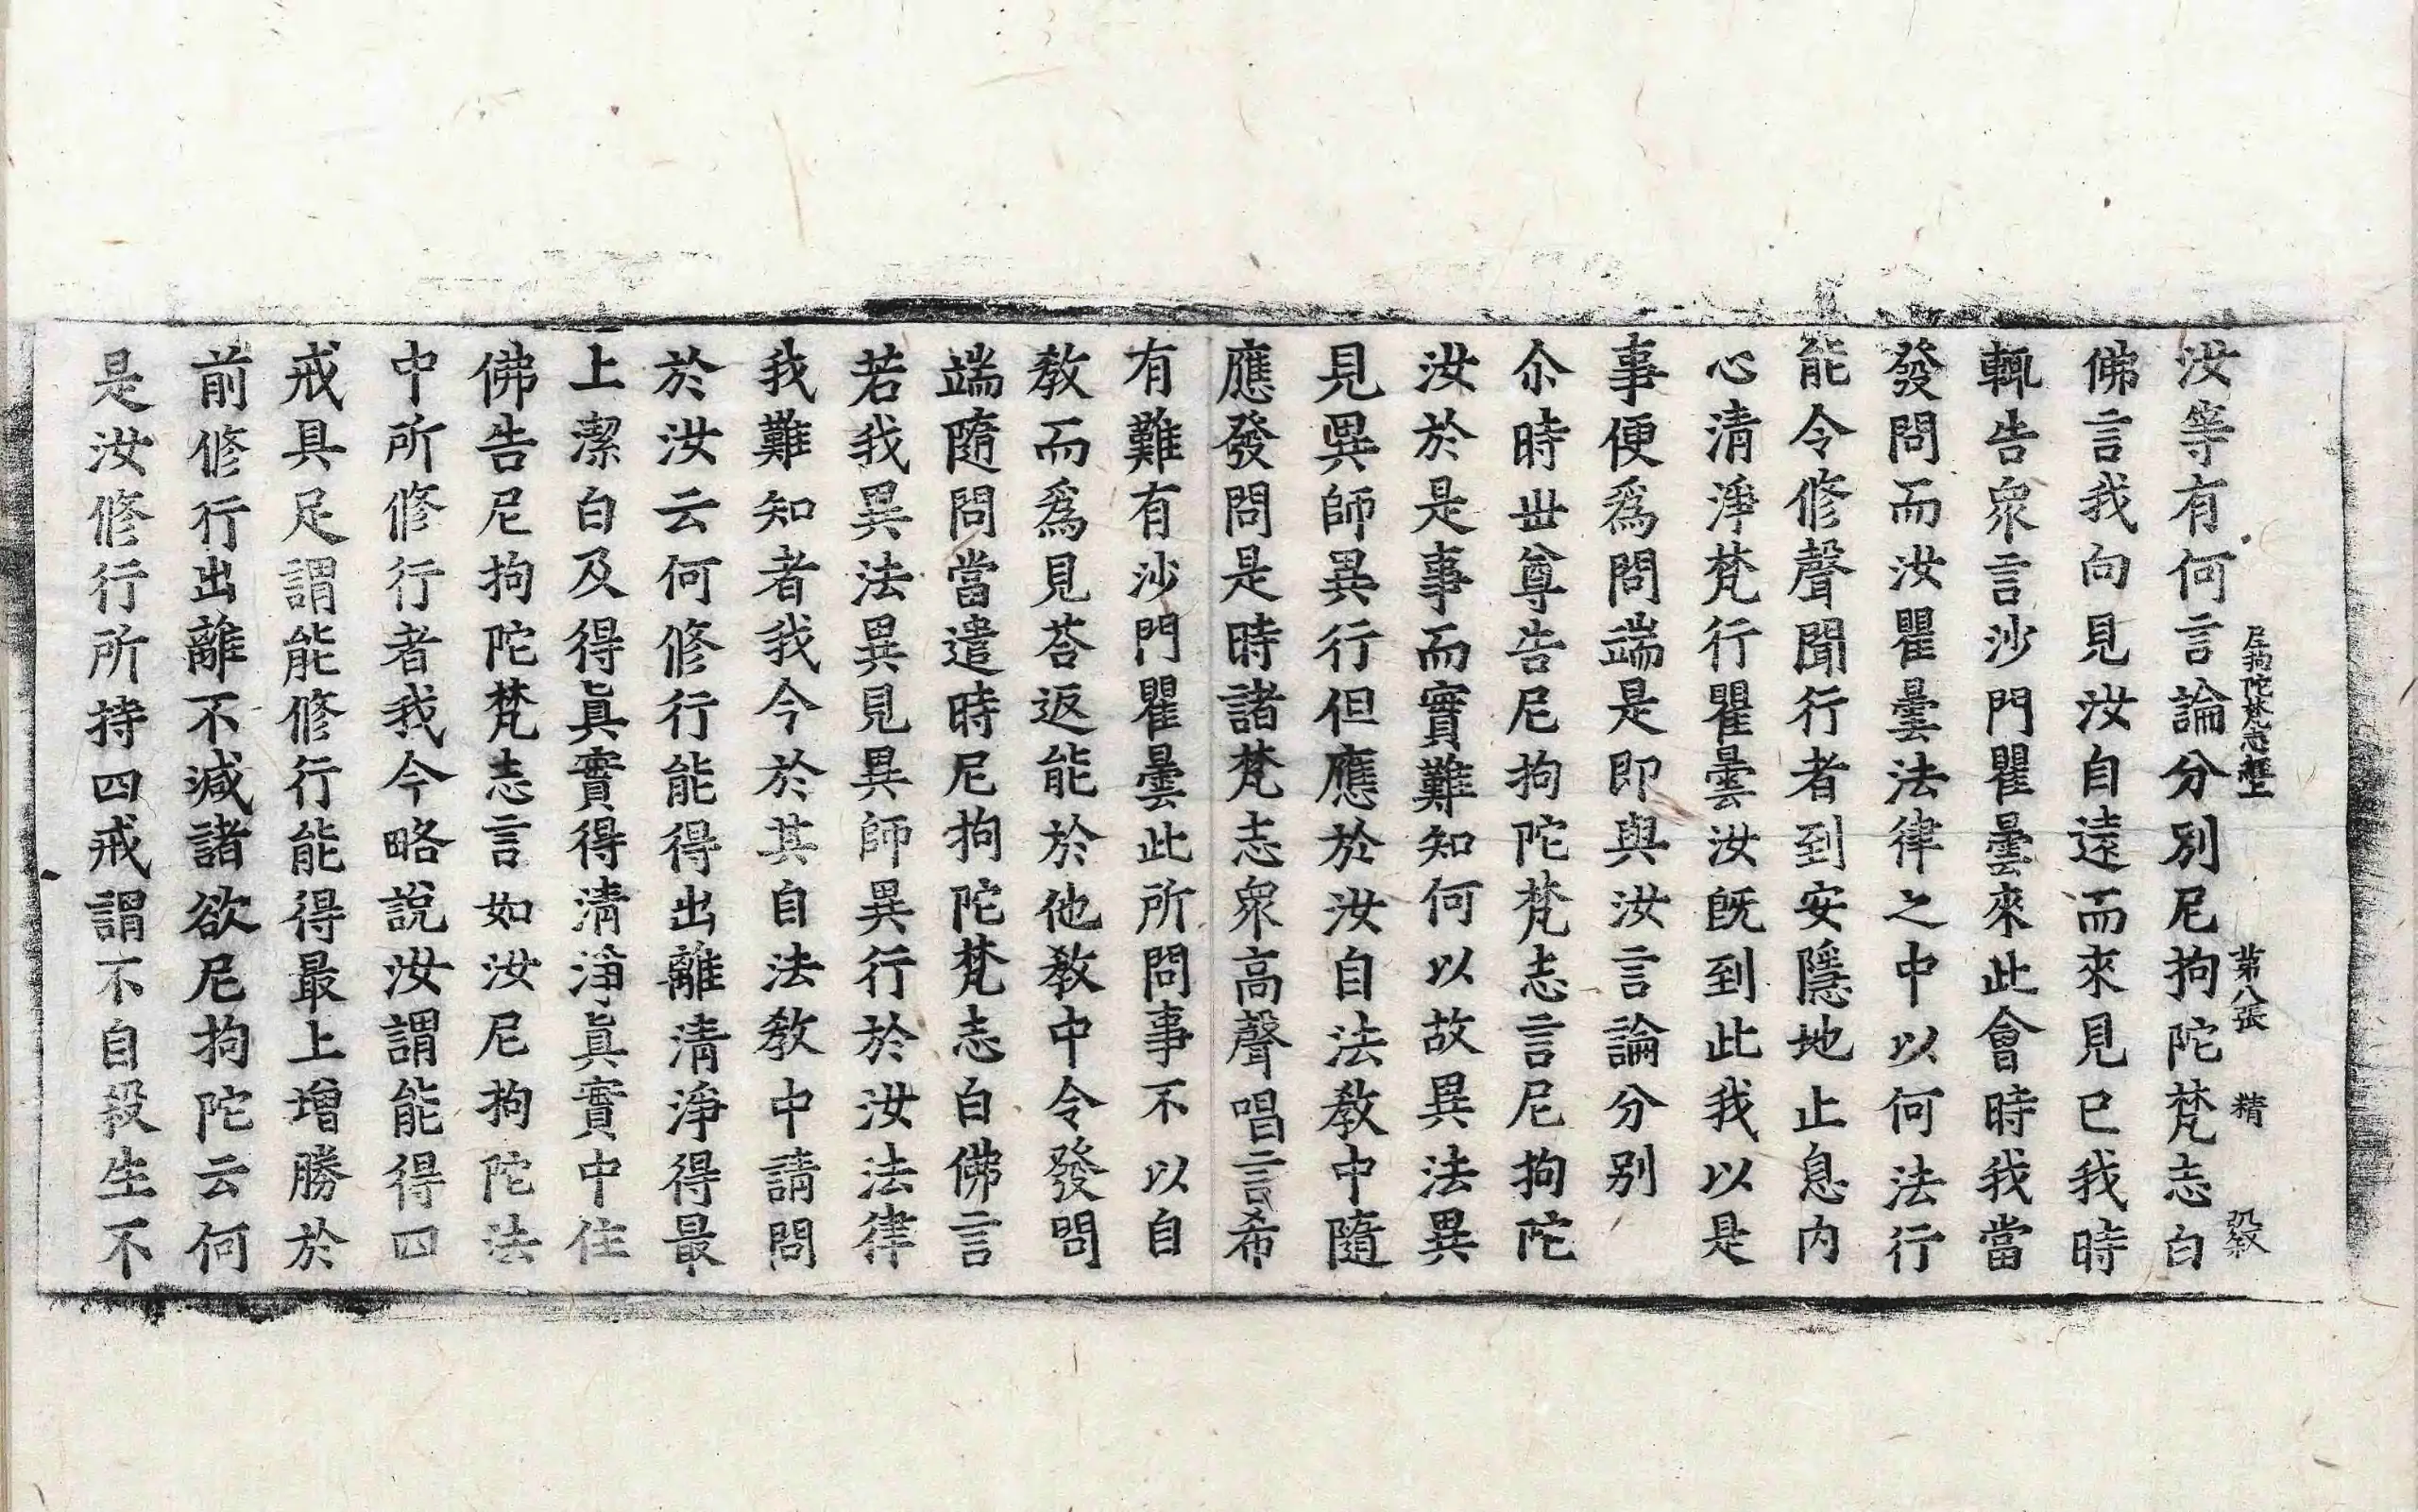 尼拘陀梵志經上 第八張 精
汝等有何言論分別尼拘陀梵志白
佛言我向見汝自遠而來見已我時
輒告衆言沙門瞿曇來此會時我當
發問而汝瞿曇法律之中以何法行
能令修聲聞行者到安隱地止息内
心清淨梵行瞿曇汝旣到此我以是
事便爲問端是即與汝言論分别
尒時世尊告尼拘陀梵志言尼拘陀
汝於是事而實難知何以故異法異
見異師異行但應於汝自法教中隨
應發問是時諸梵志衆高聲唱言希
有難有沙門瞿曇此所問事不以自
教而爲見荅返能於他教中令發問
端隨問當遣時尼拘陀梵志白佛言
若我異法異見異師異行於汝法律
我難知者我今於其自法教中請問
於汝云何修行能得出離清淨得最
上潔白及得眞實得清淨眞實中住
佛告尼拘陀梵志言如汝尼拘陀法
中所修行者我今略說汝謂能得四
戒具足謂能修行能得最上增勝於
前修行出離不減諸欲尼拘陀云何
是汝修行所持四戒謂不自殺生不